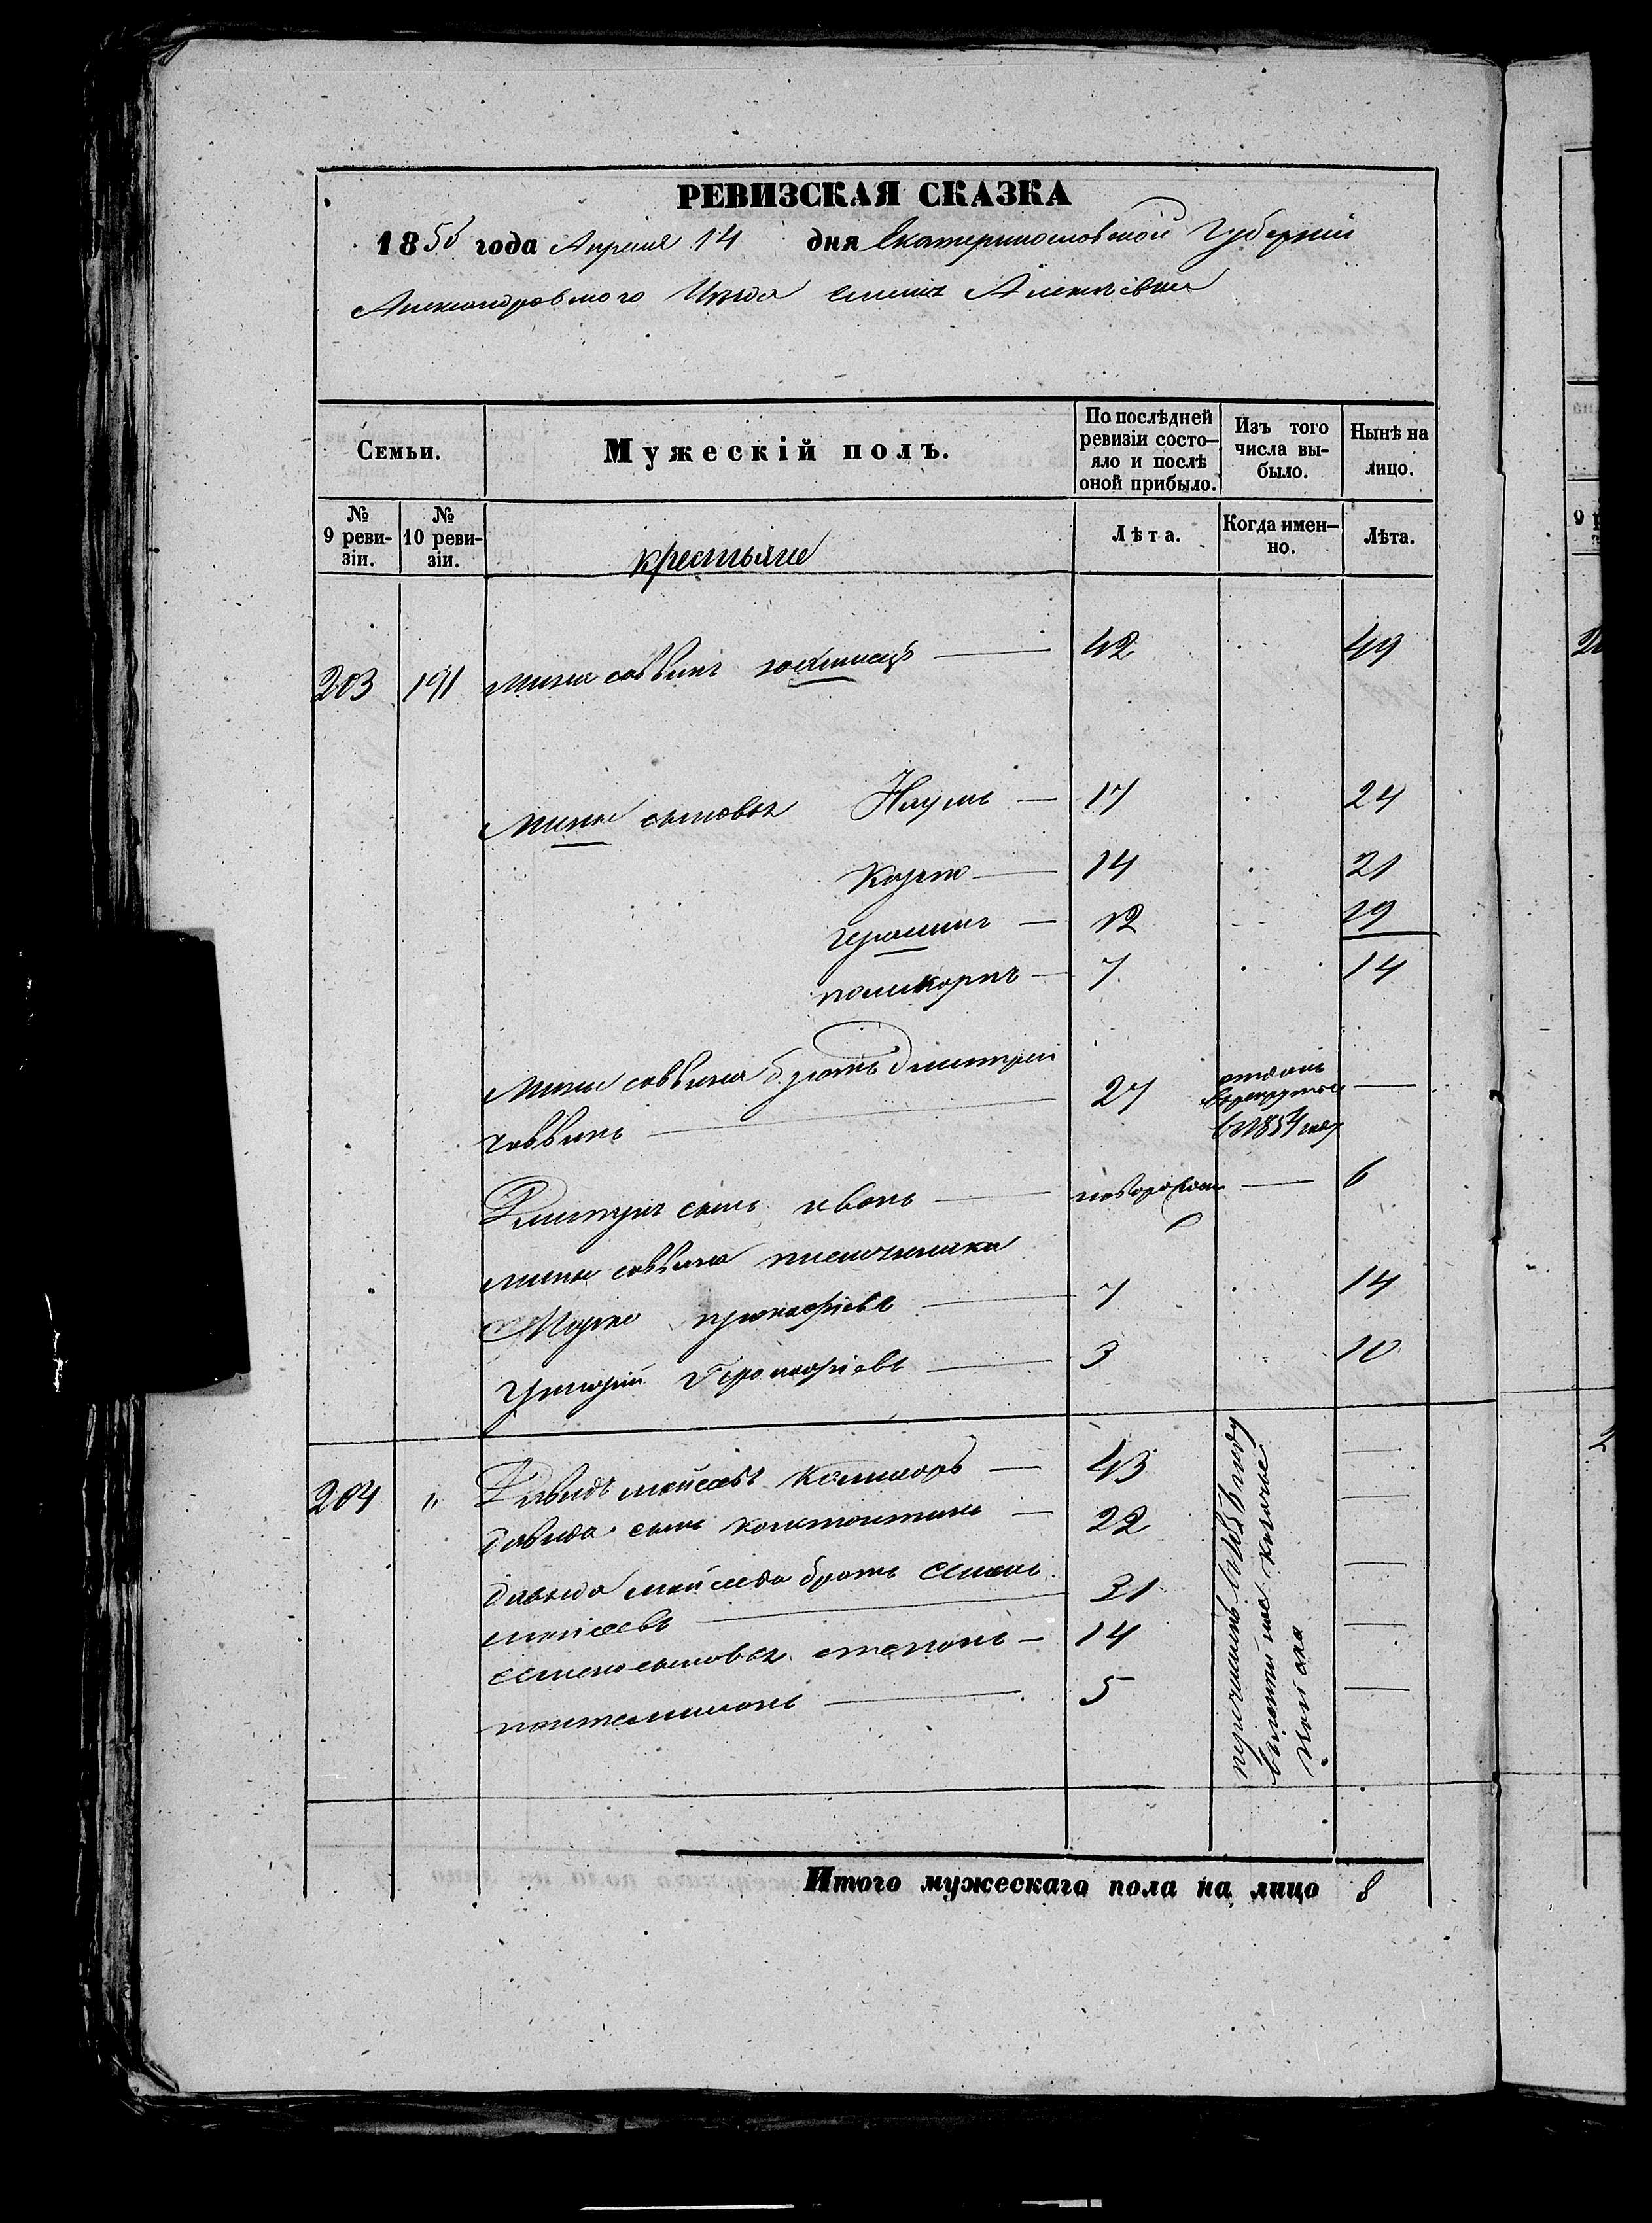 РЕВИЗСКАЯ СКАЗКА
1858 года Апреля 14 дня Екатеринославской Губерніи
Александровского Уезда
Семьи.
Мужескій полъ.
По послѣдней ревизіи состо-яло и послѣ оной прибыло.
Изъ того числа вы-было.
Нынѣ на лицо.
№ 9 реви-зіи.
№ 10 реви-зіи.
крестьяне
Лѣта.
Когда имен-но.
Лѣта.
203 191 Мина саввинъ 42 49
Мины сыновья Наумъ 17 24
Козма 14 21
герасимъ 12 19
поликарпъ 7 14
Мины саввина братъ дмитрий
саввинъ 27 отданъ в рекруты в 1854 году
Дмитрия сынъ иванъ новорожден 6
мины саввина племянники
Марко прокофіевъ 7 14
григорий Прокофіевъ 3 10
204 " Давидъ мойсеевъ 43
давида сынъ константинъ 22
давида мойсеева братъ Семенъ
мойсеевъ 31
семена сыновья степанъ 14
пантелимонъ 5
перечисленъ в году
Итого мужескаго пола на лицо 8